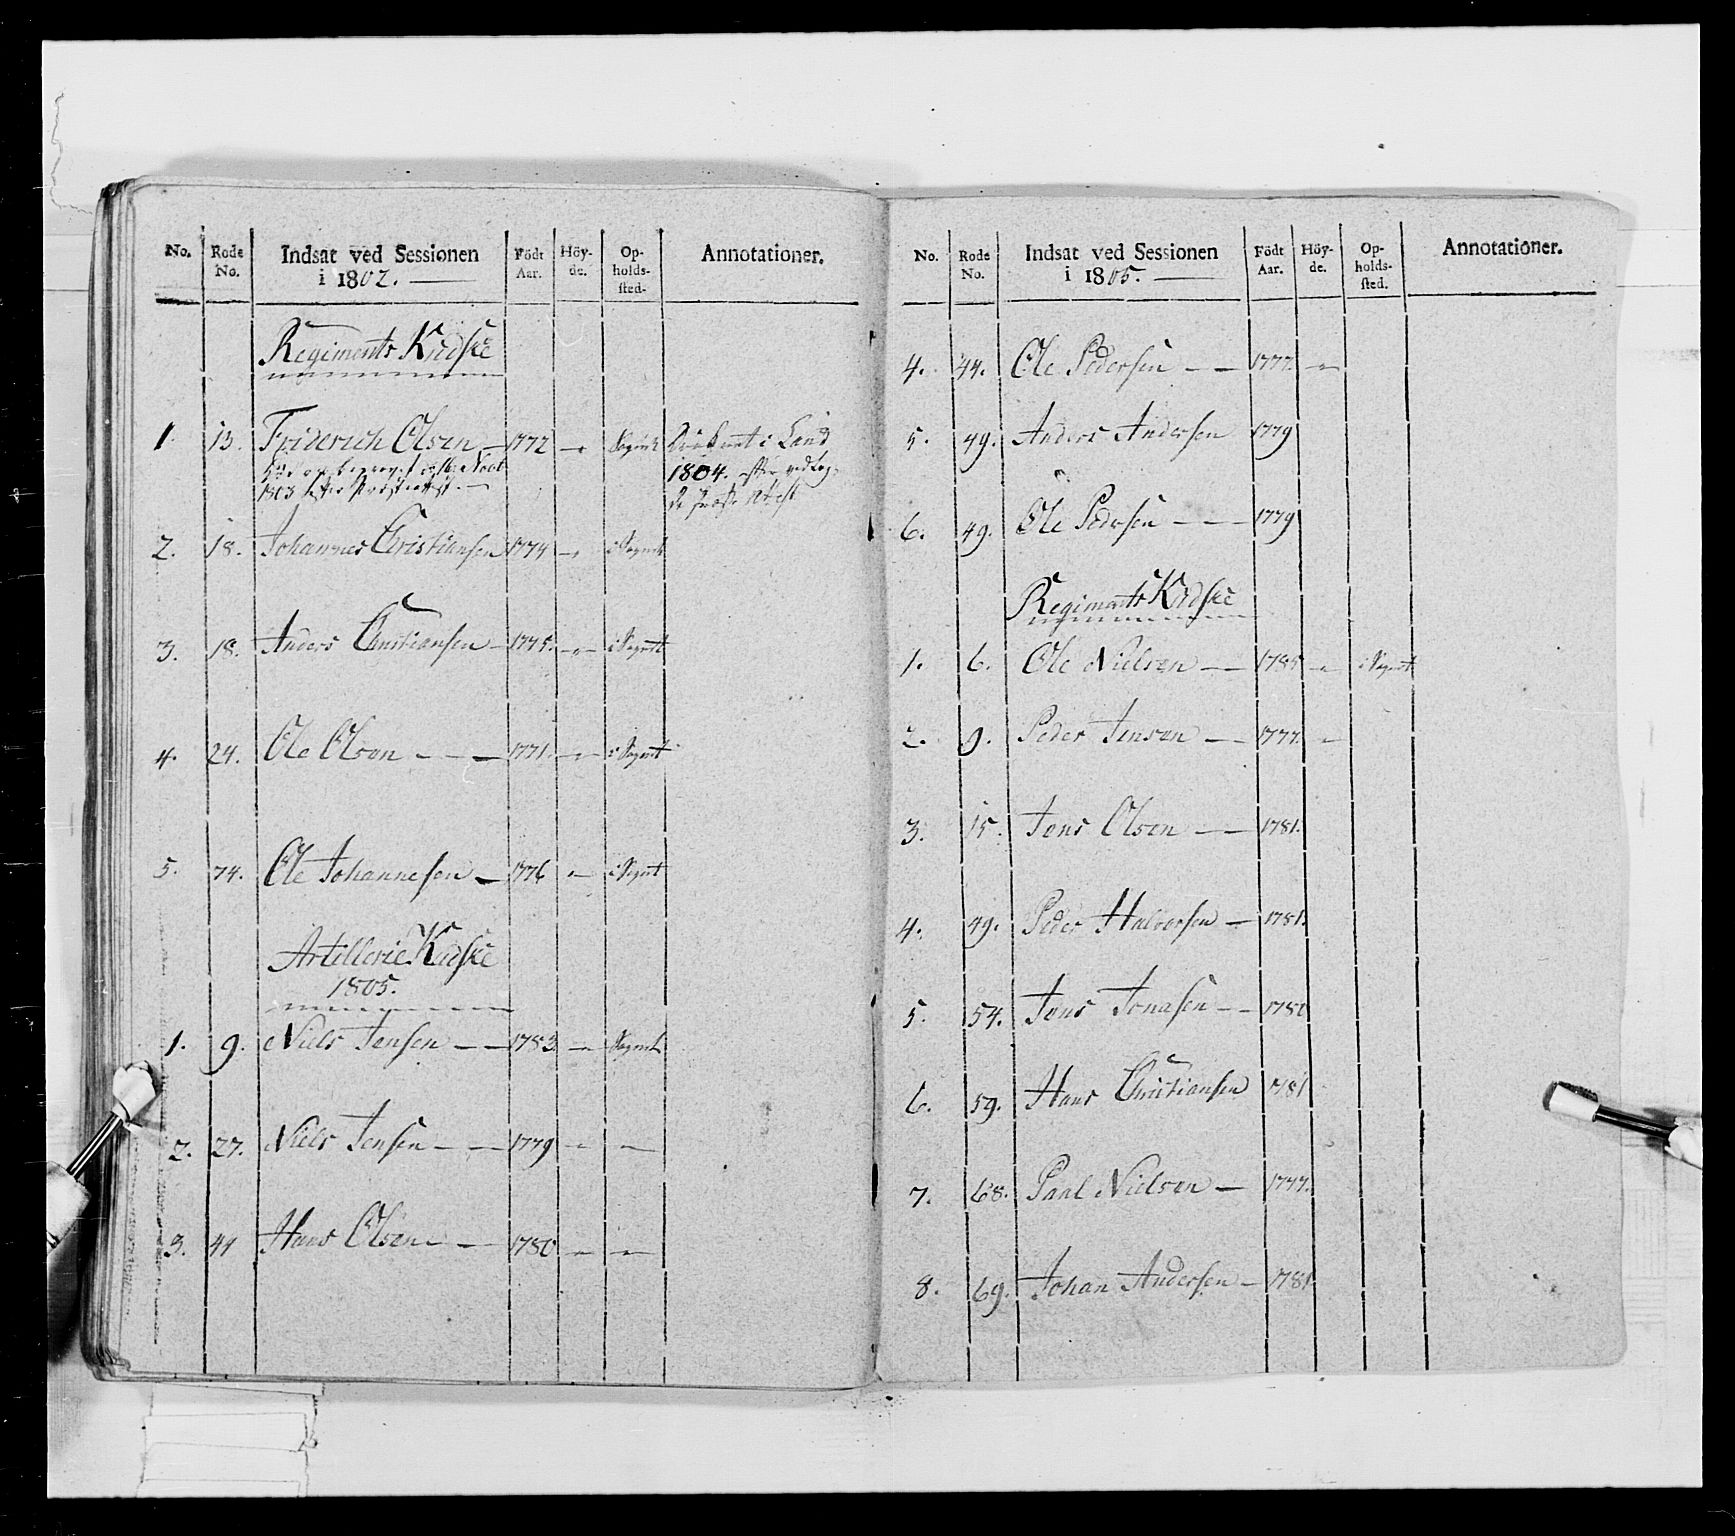 No. Rode No. Indsat ved Sessionen i 1802. Födt Aar. Höyde. Opholdssted. Annotationer.
Regiments Kudske
1. 13. Friderich Olsen — 1772 — Sognet
1804.
2. 18. Johannes Christiansen 1774 — i Sognet
3. 18. Anders Christiansen — 1775. — i Sognet
4. 24. Ole Olsen — — — 1771. — i Sognet
5. 74. Ole Johannesen — 1776 — i Sognet
Artillerie Kudske
1805.
1. 9. Niels Jensen — — 1783 — Sognet
2. 27. Niels Jensen — — 1779 — —
3. 44 Hans Olsen — — 1780 — —
No. Rode No. Indsat ved Sessionen i 1805. Födt Aar. Höyde. Opholdssted. Annotationer.
4. 44. Ole Pedersen — — 1777. —
5. 49. Anders Andersen 1779
6. 49. Ole Pedersen — — — 1779
Regiments Kudske
1. 6. Ole Nielsen — — 1785 — i Sognet
2. 9. Peder Jensen — — 1777. —
3. 15. Jens Olsen — — 1781.
4. 49. Peder Halvorsen — 1781.
5. 54. Jens Jonasen — — 1780
6. 59. Hans Christiansen 1781
7. 68. Paul Nielsen — 1777.
8. 69. Johan Andersen — 1781.